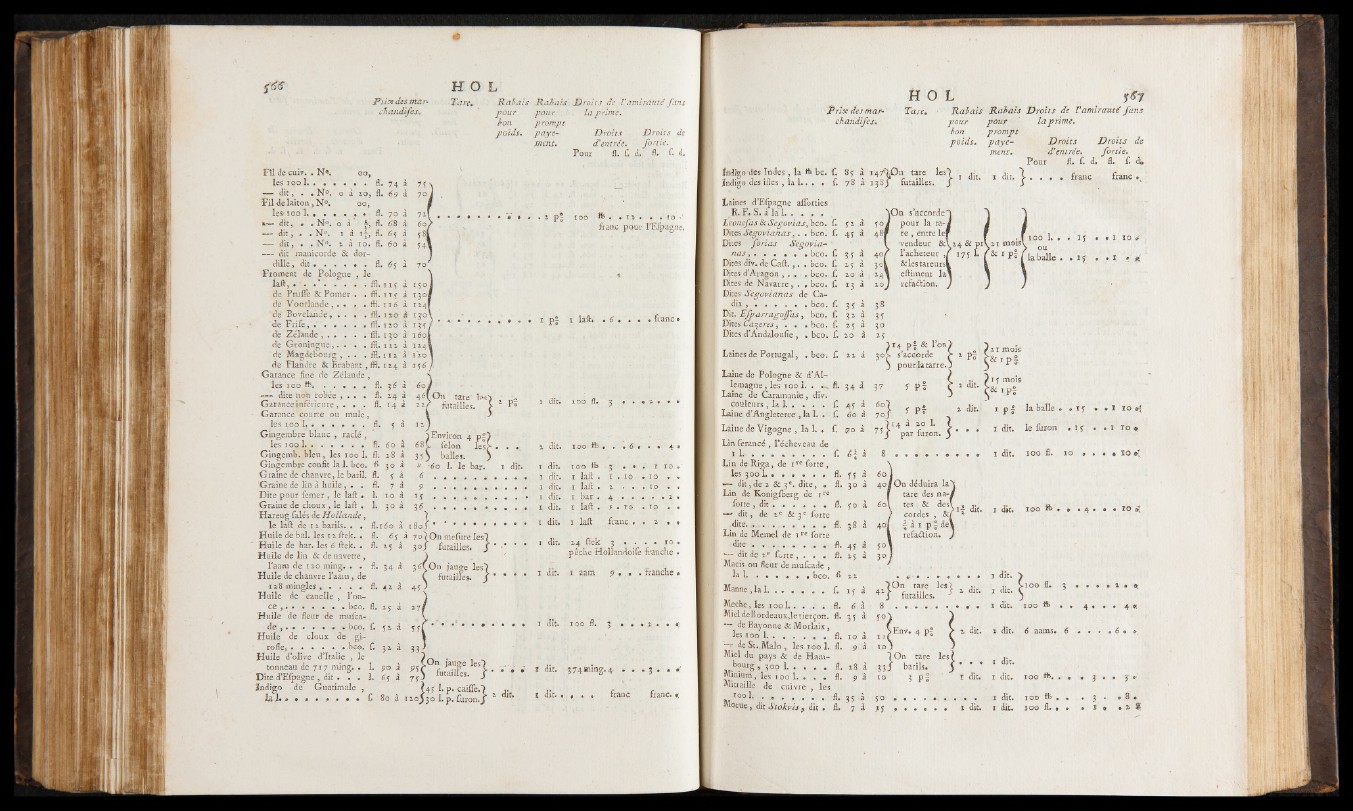 566
H O L
Prix des marchandises. Tare. Rabais pour bon poids. Rabais pour prompt payement. Droits de l'amirauté sans la prime.
Droits d'entrée. Droits de sortie.
Pour fl. s. d. fl. s. d.
Fil de cuiv. . No. 00,
les 100 l. . . . . . . fl. 74 à 75
— dit, . . No. 0 à 20, fl. 69 à 70
Fil de laiton, No. 00,
les 100 l. . . . . . . fl. 70 à 72
— dit, . . No. 0 à fl. 68 à 60 . . . . 2 p° 100 ℔ . . 12 . . . 10
— dit, . . No. 1 à fl. 65 à 58 franc pour l'Espagne.
— dit, . . No. 2 à 10. fl. 60 à 54
— dit manicorde & dordille, dit . . . . . . fl. 65 à 70
Froment de Pologne, le
last, . . . . . . . ffl. 115 à 150
de Prusse & Pomer . . ffl. 115 à 130
de Voorlande, . . . . ffl. 116 à 124
de Bovelande, . . . . ffl. 120 à 130
de Frise, . . . . . . ffl. 120 à 135 . . . . 1 p° 1 last. . 6 . . . . franc
de Zélande . . . . . . ffl. 130 à 160
de Groningue, . . . . ffl. 112 à 124
de Magdebourg, . . . ffl. 112 à 120
de Flandre & Brabant, ffl. 124 à 156
Garance fine de Zélande,
les 100 ℔. . . . . . fl. 36 à 60
— dite non robée, . . . fl. 24 à 48 On tare les
Garance inférieure, . . . fl. 14 à 22 futailles. 2 p° 1 dit. 100 fl. 3 . . . 2 . . .
Garance courte ou mule,
les 100 l. . . . . . . fl. 5 à 12
Gingembre blanc, raclé, Environ 4 p°
les 100 l. . . . . . . fl. 60 à 68 selon les . . . 2 dit. 100 ℔ . . . 6 . . . 4
Gingemb. bleu, les 100 l. fl. 28 à 35 balles.
Gingembre confit la l. bco. ß 30 à 60 l. le bar. 1 dit. 1 dit. 100 ℔ 3 . . . 1 10
Graine de chanvre, le baril. fl. 5 à 6 . . . . 1 dit. 1 last . 1 . 10 . 10 . .
Graine de lin à huile, . . fl. 7 à 9 . . . . 1 dit. 1 last . 2 . . . 10 . .
Dite pour semer, le last . l. 10 à 15 . . . . 1 dit. 1 bar . 4 . . . . . 2
Graine de choux, le last . l. 30 à 36 . . . . 1 dit. 1 last . 10 . 10 . .
Hareng salés de Hollande,
le last de 12 barils. . . fl. 160 à 180 . . . . 1 dit. 1 last franc . . 2 . .
Huile de bal. les 12 stek. . fl. 65 à 70 On mesure les
Huile de har. les 6 stek. . fl. 25 à 30 futailles. . . . 1 dit. 24 stek 3 . . . . 10
Huile de lin & de navette, pêche Hollandoise franche .
l'aam de 120 ming. . . fl. 34 à 36 On jauge les
Huile de chanvre l'aam, de futailles. . . . . 1 dit. 1 aam 9 . . . franche
128 mingles, . . . . fl. 42 à 45
Huile de canelle, l'once, . . . . . . . bco. fl. 25 à 27
Huile de fleur de muscade, . . . . . . . bco. s. 52 à 55 . . . . 1 dit. 100 fl. 3 . . . 2 . . .
Huile de cloux de girofle, . . . . . . . bco. s. 32 à 33
Huile d'olive d'Italie, le
tonneau de 717 ming. . l. 90 à 95 On jauge les
Dite d'Espagne, dit . . . l. 65 à 75 futailles. . . . 1 dit. 374 ming. 4 . . . 3 . . .
Indigo de Guatimale, 45 l. p. caisse.
la l. . . . . . . . . s. 80 à 120 30 l. p. suron. 2 dit. 1 dit. . . . . franc franc.
H O L
567
Prix des marchandises. Tare. Rabais pour bon poids. Rabais pour prompt payement. Droits de l'amirauté sans la prime.
Droits d'entrée. Droits de sortie.
Pour fl. s. d. fl. s. d.
Indigo des Indes, la ℔ bc. s. 85 à 147 On tare les
Indigo des isles, la l. . . . s. 78 à 138 futailles. 1 dit. 1 dit. . . . . franc franc
Laines d'Espagne assorties
R. F. S. à la l. . . . . On s'accorde
Leonesas & Segovias, bco. s. 52 à 50 pour la ta-
Dites Segovianas, . . bco. s. 45 à 48 re, entre le
Dites sorias Segovia- vendeur & 24 & pt 21 mois 100 l. . . 15 . . 1 10
nas, . . . . . . bco. s. 35 à 40 l'acheteur, 175 l. & 1 p° ou
Dites div. de Cast., . . bco. s. 25 à 30 & les tareurs la balle . . 15 . . 1
Dites d'Aragon, . . . bco. s. 20 à 24 estiment la
Dites de Navarre, . . bco. s. 13 à 20 refaction.
Dites Segovianas de Cadix, . . . . . . . bco. s. 35 à 38
Dit. Esparragossas, bco. s. 32 à 35
Dites Cazeres, . . . bco. s. 25 à 30
Dites d'Andalousie, . bco. s. 20 à 25
14 p° & l'on 21 mois
Laines de Portugal, . bco. s. 22 à 30 s'accorde 2 p° & 1 p°
pour la tarre.
Laine de Pologne & d'Allemagne, les 100 l. . . fl. 34 à 37 5 p° 2 dit. 15 mois
Laine de Caramanie, div. & 1 p°
couleurs, la l. . . . . s. 45 à 60
Laine d'Angleterre, la l. . s. 60 à 70 5 p° 2 dit. 1 p° la balle . . 15 . . 1 10
Laine de Vigogne, la l. . s. 70 à 75 14 à 20 l.
par suron. . . . 1 dit. le suron . 15 . . 1 10
Lin serancé, l'écheveau de
1 l. . . . . . . . . . s. à 8 . . . . 1 dit. 100 fl. 10 . . . . 10
Lin de Riga, de 1re sorte,
les 300 l. . . . . . . fl. 55 à 60
— dit, de 2 & 3e. dite, . fl. 30 à 40 On déduira la
Lin de Konigsberg de 1re tare des na-
sorte, dit . . . . . . fl. 50 à 60 tes & des
— dit, de 2e & 3e sorte cordes, & dit. 1 dit. 100 ℔ . . . 4 . . . 10
dite. . . . . . . . . fl. 38 à 40 à 1 p° de
Lin de Memel de 1re sorte refaction.
dite . . . . . . . . fl. 45 à 50
— dit de 2e sorte, . . . fl. 25 à 30
Macis ou fleur de muscade,
la l. . . . . . . bco. ß 22 . . . . 1 dit.
Manne, la l. . . . . . . s. 15 à 42 On tare les 2 dit. 1 dit. 100 fl. 3 . . . . 2
futailles.
Meche, les 100 l. . . . . fl. 6 à 8 . . . . 1 dit. 100 ℔ . . 4 . . . 4
Miel de Bordeaux, le tierçon. fl. 35 à 50
— de Bayonne & Morlaix,
les 100 l. . . . . . . fl. 10 à 11 Env. 4 p° 2 dit. 2 dit. 6 aams. 6 . . . . 6
— de St. Malo, les 100 l. fl. 9 à 10
Miel du pays & de Hambourg, 300 l. . . . . fl. 28 à 33 On tare les barils. . . . 1 dit.
Minium, les 100 l. . . . fl. 9 à 10 3 p° 1 dit. 1 dit. 100 ℔. . . . 3 . . 3
Mitraille de cuivre, les
100 l. . . . . . . . fl. 35 à 50 . . . . 1 dit. 100 ℔ . . . 3 . . 8
Morue, dit Stokvis, dit . fl. 7 à 15 . . . . 1 dit. 1 dit. 100 fl. . . . 1 . . 2